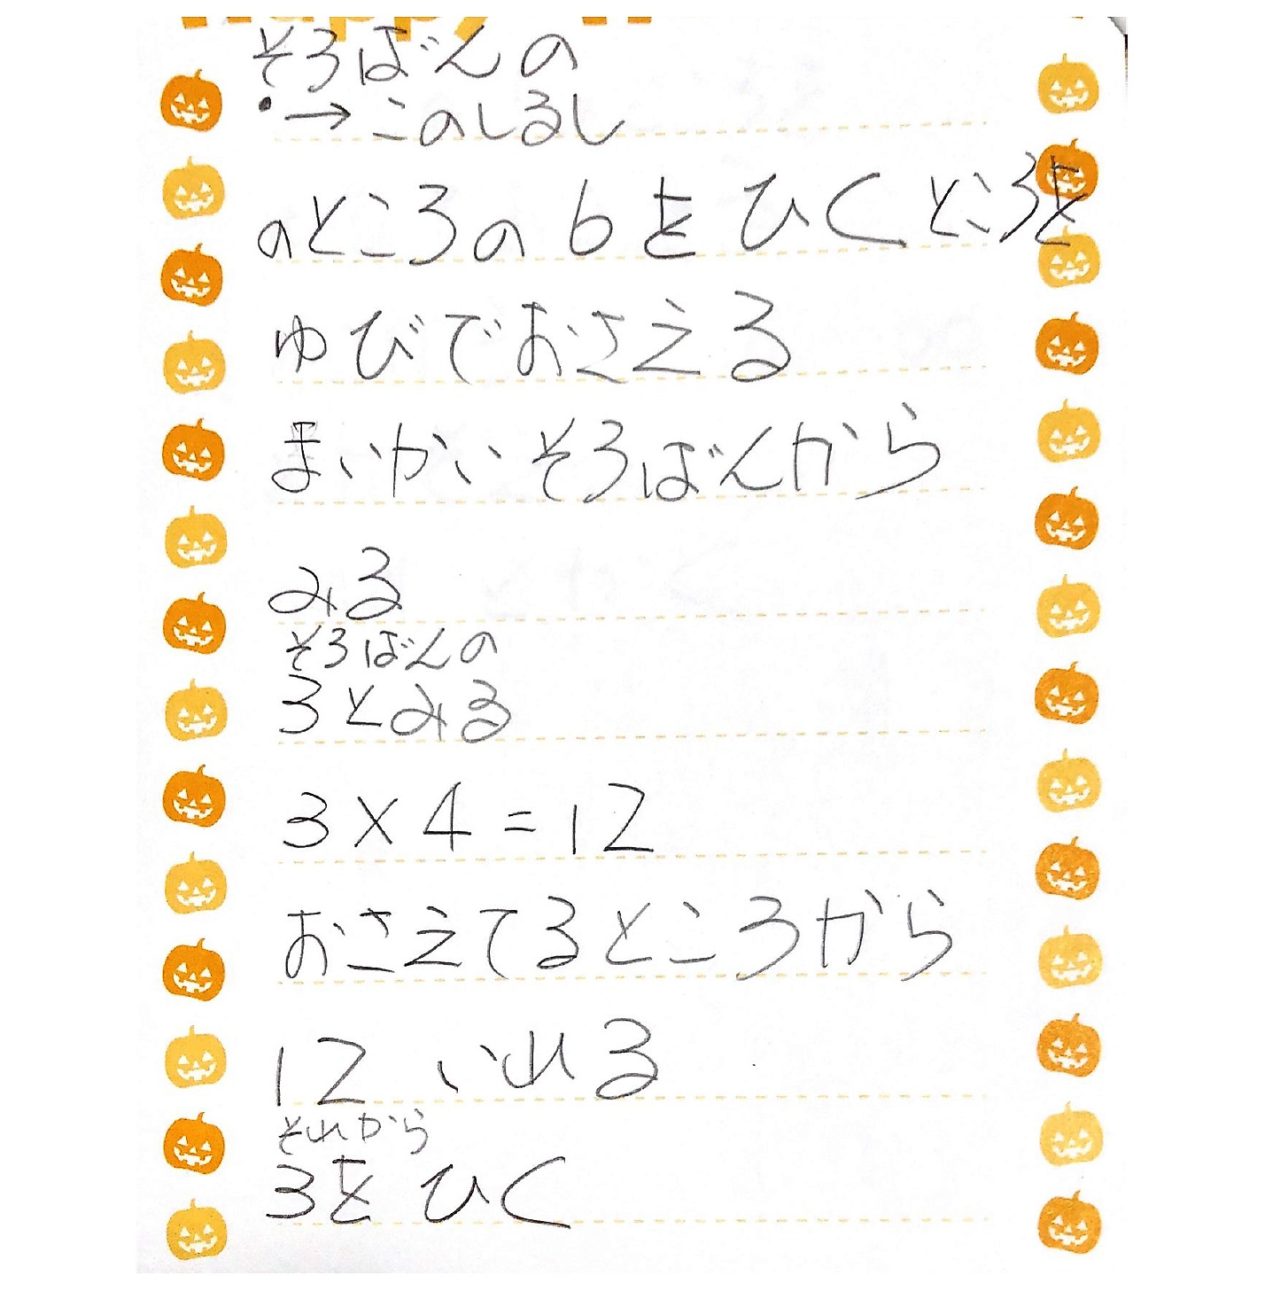 そろばんの
・→このしるし
のところの6をひくところを
ゆびでおさえる
まいかいそろばんから
みる
そろばんの
3とみる
3×4=12
おさえてるところから
12 いれる
それから
3をひく